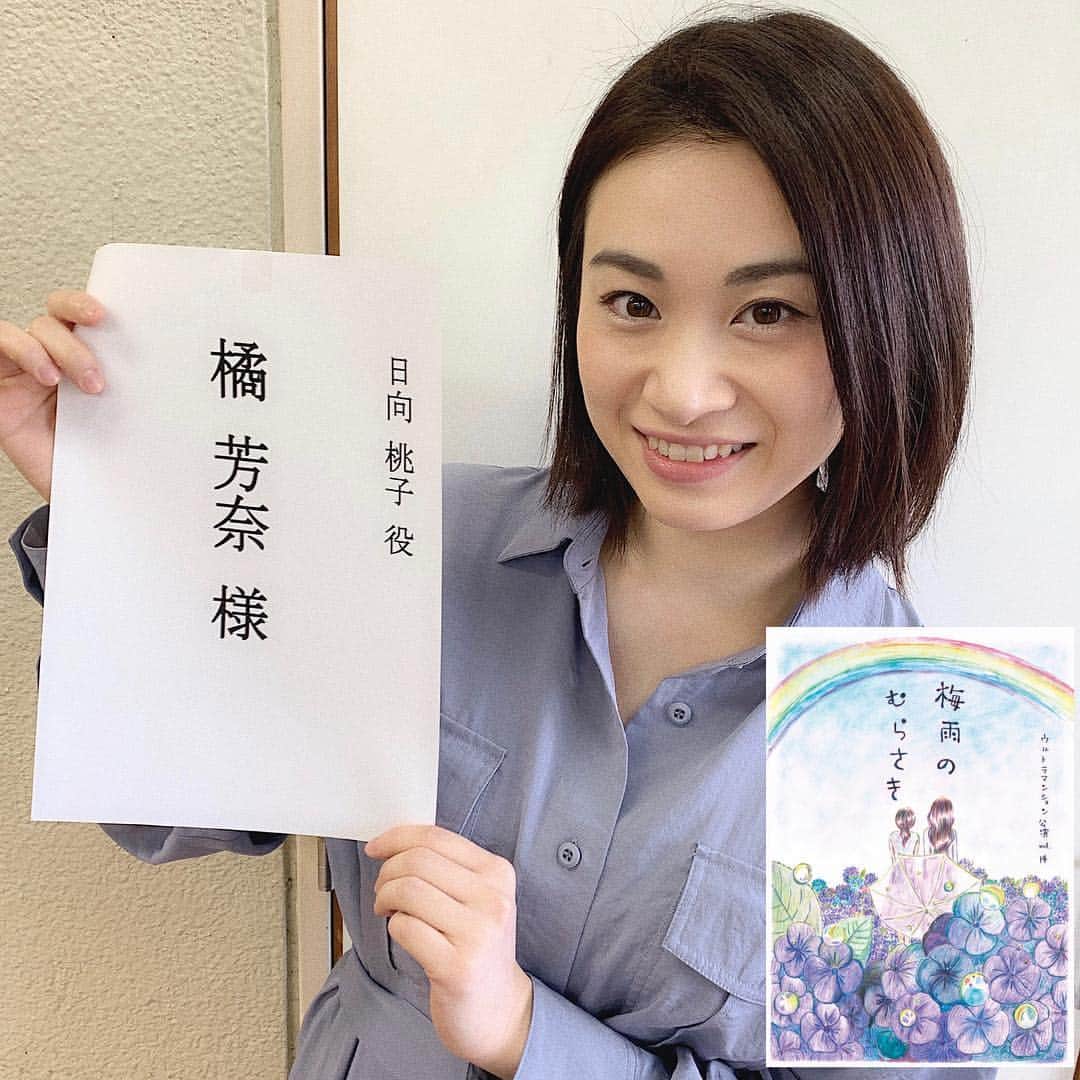 日向 桃子 役
橘 芳奈 様
梅雨の
むらさき
ウルトラマンション公演vol.14